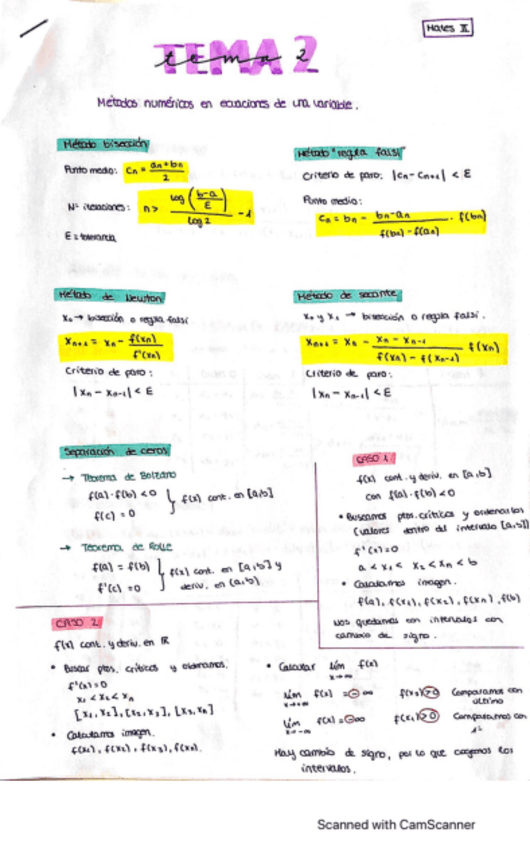 Mates II
TEMA 2
tema 2
Métodos numéricos en ecuaciones de una variable.
Método bisección
Punto medio: Cn = an+bn / 2
Nº iteraciones: n > log (b-a / E) / log 2 - 1
E = tolerancia
Método "regula falsi"
Criterio de paro: |Cn - Cn+1| < E
Punto medio:
Cn = bn - bn-an / f(bn) - f(an) · f(bn)
Método de Newton
X0 → bisección o regula falsi
Xn+1 = Xn - f(Xn) / f'(Xn)
Criterio de paro:
|Xn - Xn-1| < E
Método de secante
X0 y X1 → bisección o regula falsi.
Xn+1 = Xn - Xn - Xn-1 / f(Xn) - f(Xn-1) f(Xn)
Criterio de paro:
|Xn - Xn-1| < E
Separación de ceros
→ Teorema de Bolzano
f(a)·f(b) < 0 } f(x) cont. en [a,b]
f(c) = 0
→ Teorema de Rolle
f(a) = f(b) } f(x) cont. en [a,b] y
f'(c) = 0 deriv. en (a,b)
CASO 1
f(x) cont. y deriv. en [a,b]
con f(a)·f(b) < 0
• Buscamos ptos. críticos y ordenarlos
(valores dentro del intervalo [a,b])
f'(x) = 0
a < x1 < x2 < xn < b
• Calculamos imagen.
f(a), f(x1), f(x2), f(xn), f(b)
Nos quedamos con intervalos con
cambio de signo.
CASO 2
f(x) cont. y deriv. en IR
• Buscar ptos. críticos y ordenamos.
f'(x) = 0
x1 < x2 < xn
[x1, x2], [x2, x3], [x3, xn]
• Calculamos imagen.
f(x1), f(x2), f(x3), f(xn).
• Calcular lim f(x)
x→∞
lim f(x) = -∞ f(x3) > 0 Comparamos con
x→+∞ último
lim f(x) = -∞ f(x1) > 0 Comparamos con
x→-∞ 1º
Hay cambio de signo, por lo que cogemos los
intervalos.
Scanned with CamScanner